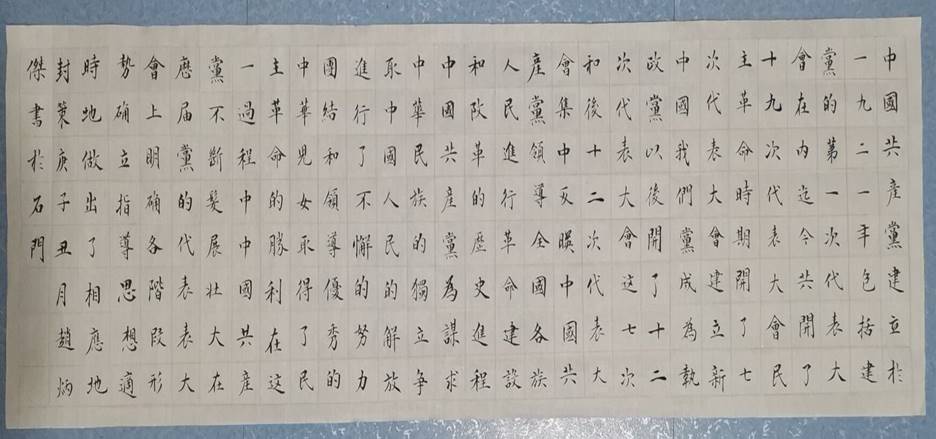 中國共產黨建立於
一九二一年包括建
黨的第一次代表大
會在內迄今共開了
十九次代表大會民
主革命時期開了七
次代表大會建立新
中國我們黨成為執
政黨以後開了十二
次代表大會這七次
和後十二次代表大
會集中反映中國共
產黨領導全國各族
人民進行革命建設
和改革的歷史進程
中國共產黨為謀求
中華民族的獨立爭
取中國人民的解放
進行了不懈的努力
團結和領導優秀的
中華兒女取得了民
主革命的勝利在這
一過程中中國共產
黨不斷發展壯大在
歷届黨的代表表大
會上明确各階段形
勢确立指導思想適
時地做出了相應地
封策庚子丑月趙炳
傑書於石門